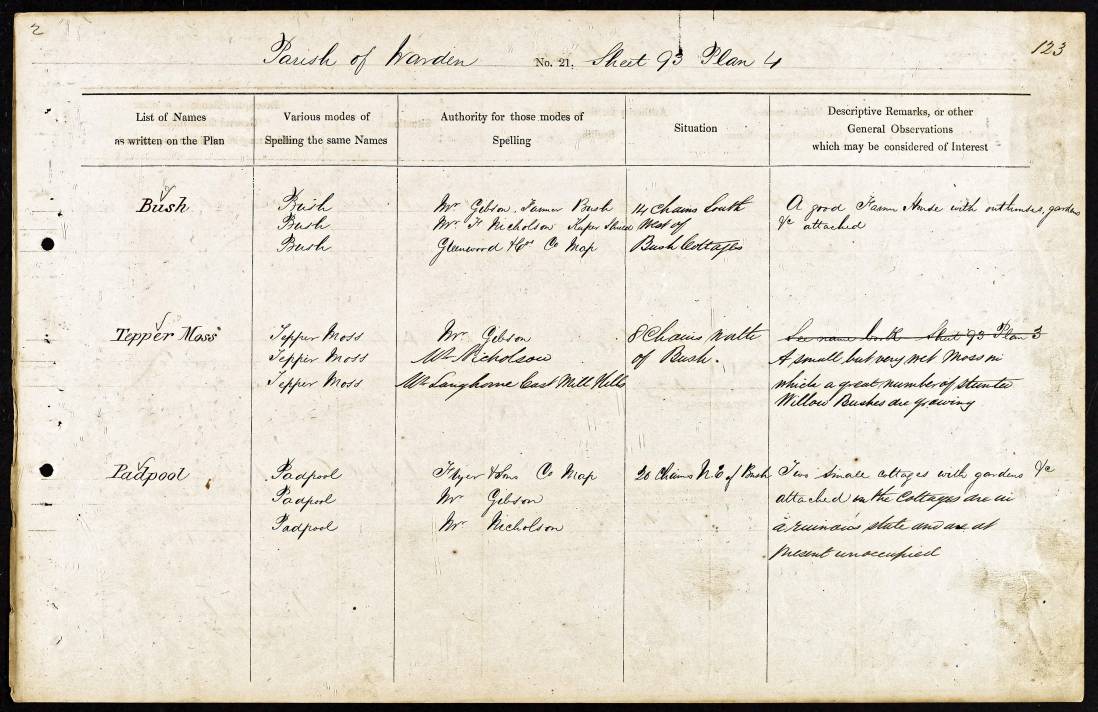 2
123
Parish of Warden No. 21. Sheet 93 Plan 4
List of Names
as written on the Plan
Various modes of
Spelling the same Names
Authority for those modes of
Spelling
Situation
Descriptive Remarks, or other
General Observations
which may be considered of Interest
Bush
Bush
Bush
Bush
Mr Gibson. Farmer Bush
Mr Nicholson
Greenwood & Co Co Map
14 Chains South
West of
Bush Cottages
A good Farm House with outhouses, gardens
&c attached
Tepper Moss
Tepper Moss
Tepper Moss
Tepper Moss
Mr Gibson
Mr Nicholson
Mr Langhorne East Mill Hills
8 Chains North
of Bush.
See name book Sheet 93 Plan 3
A small but very wet Moss in
which a great number of stunted
Willow Bushes are growing
Padpool
Padpool
Padpool
Padpool
Fryer & Sons Co Map
Mr Gibson
Mr Nicholson
20 Chains N.E of Bush
Two small cottages with gardens &c
attached the Cottages are in
a ruinous state and are at
present unoccupied